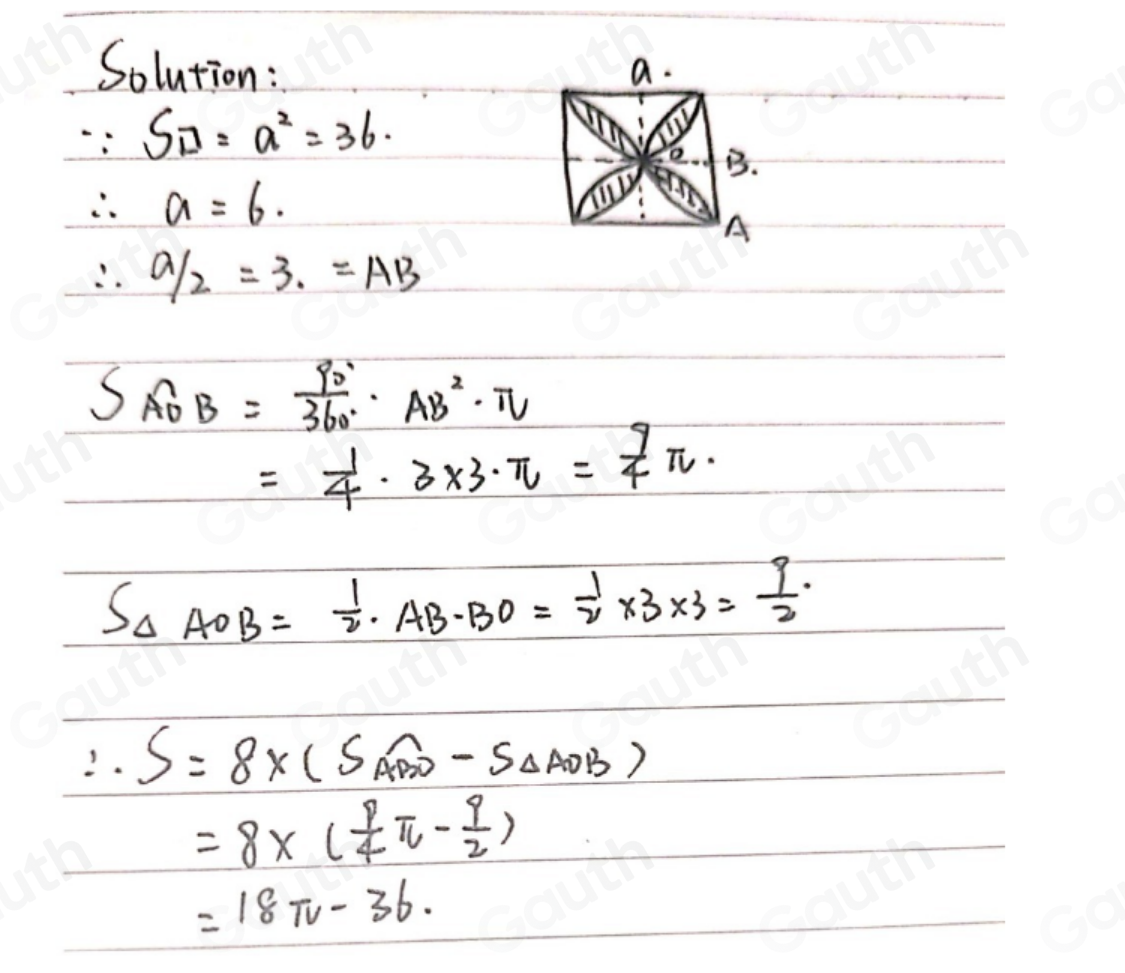 Solution:
a.
∵ S□ = a² = 36.
o
B.
∴ a = 6.
A
∴ a/2 = 3. = AB
S A͡OB = 90°/360° · AB² · π
= 1/4 · 3×3·π = 9/4 π.
S△ AOB = 1/2 · AB·BO = 1/2 ×3×3 = 9/2.
∴ S = 8×(S A͡BO − S△AOB)
= 8× (9/4 π − 9/2)
= 18π − 36.
Gauth